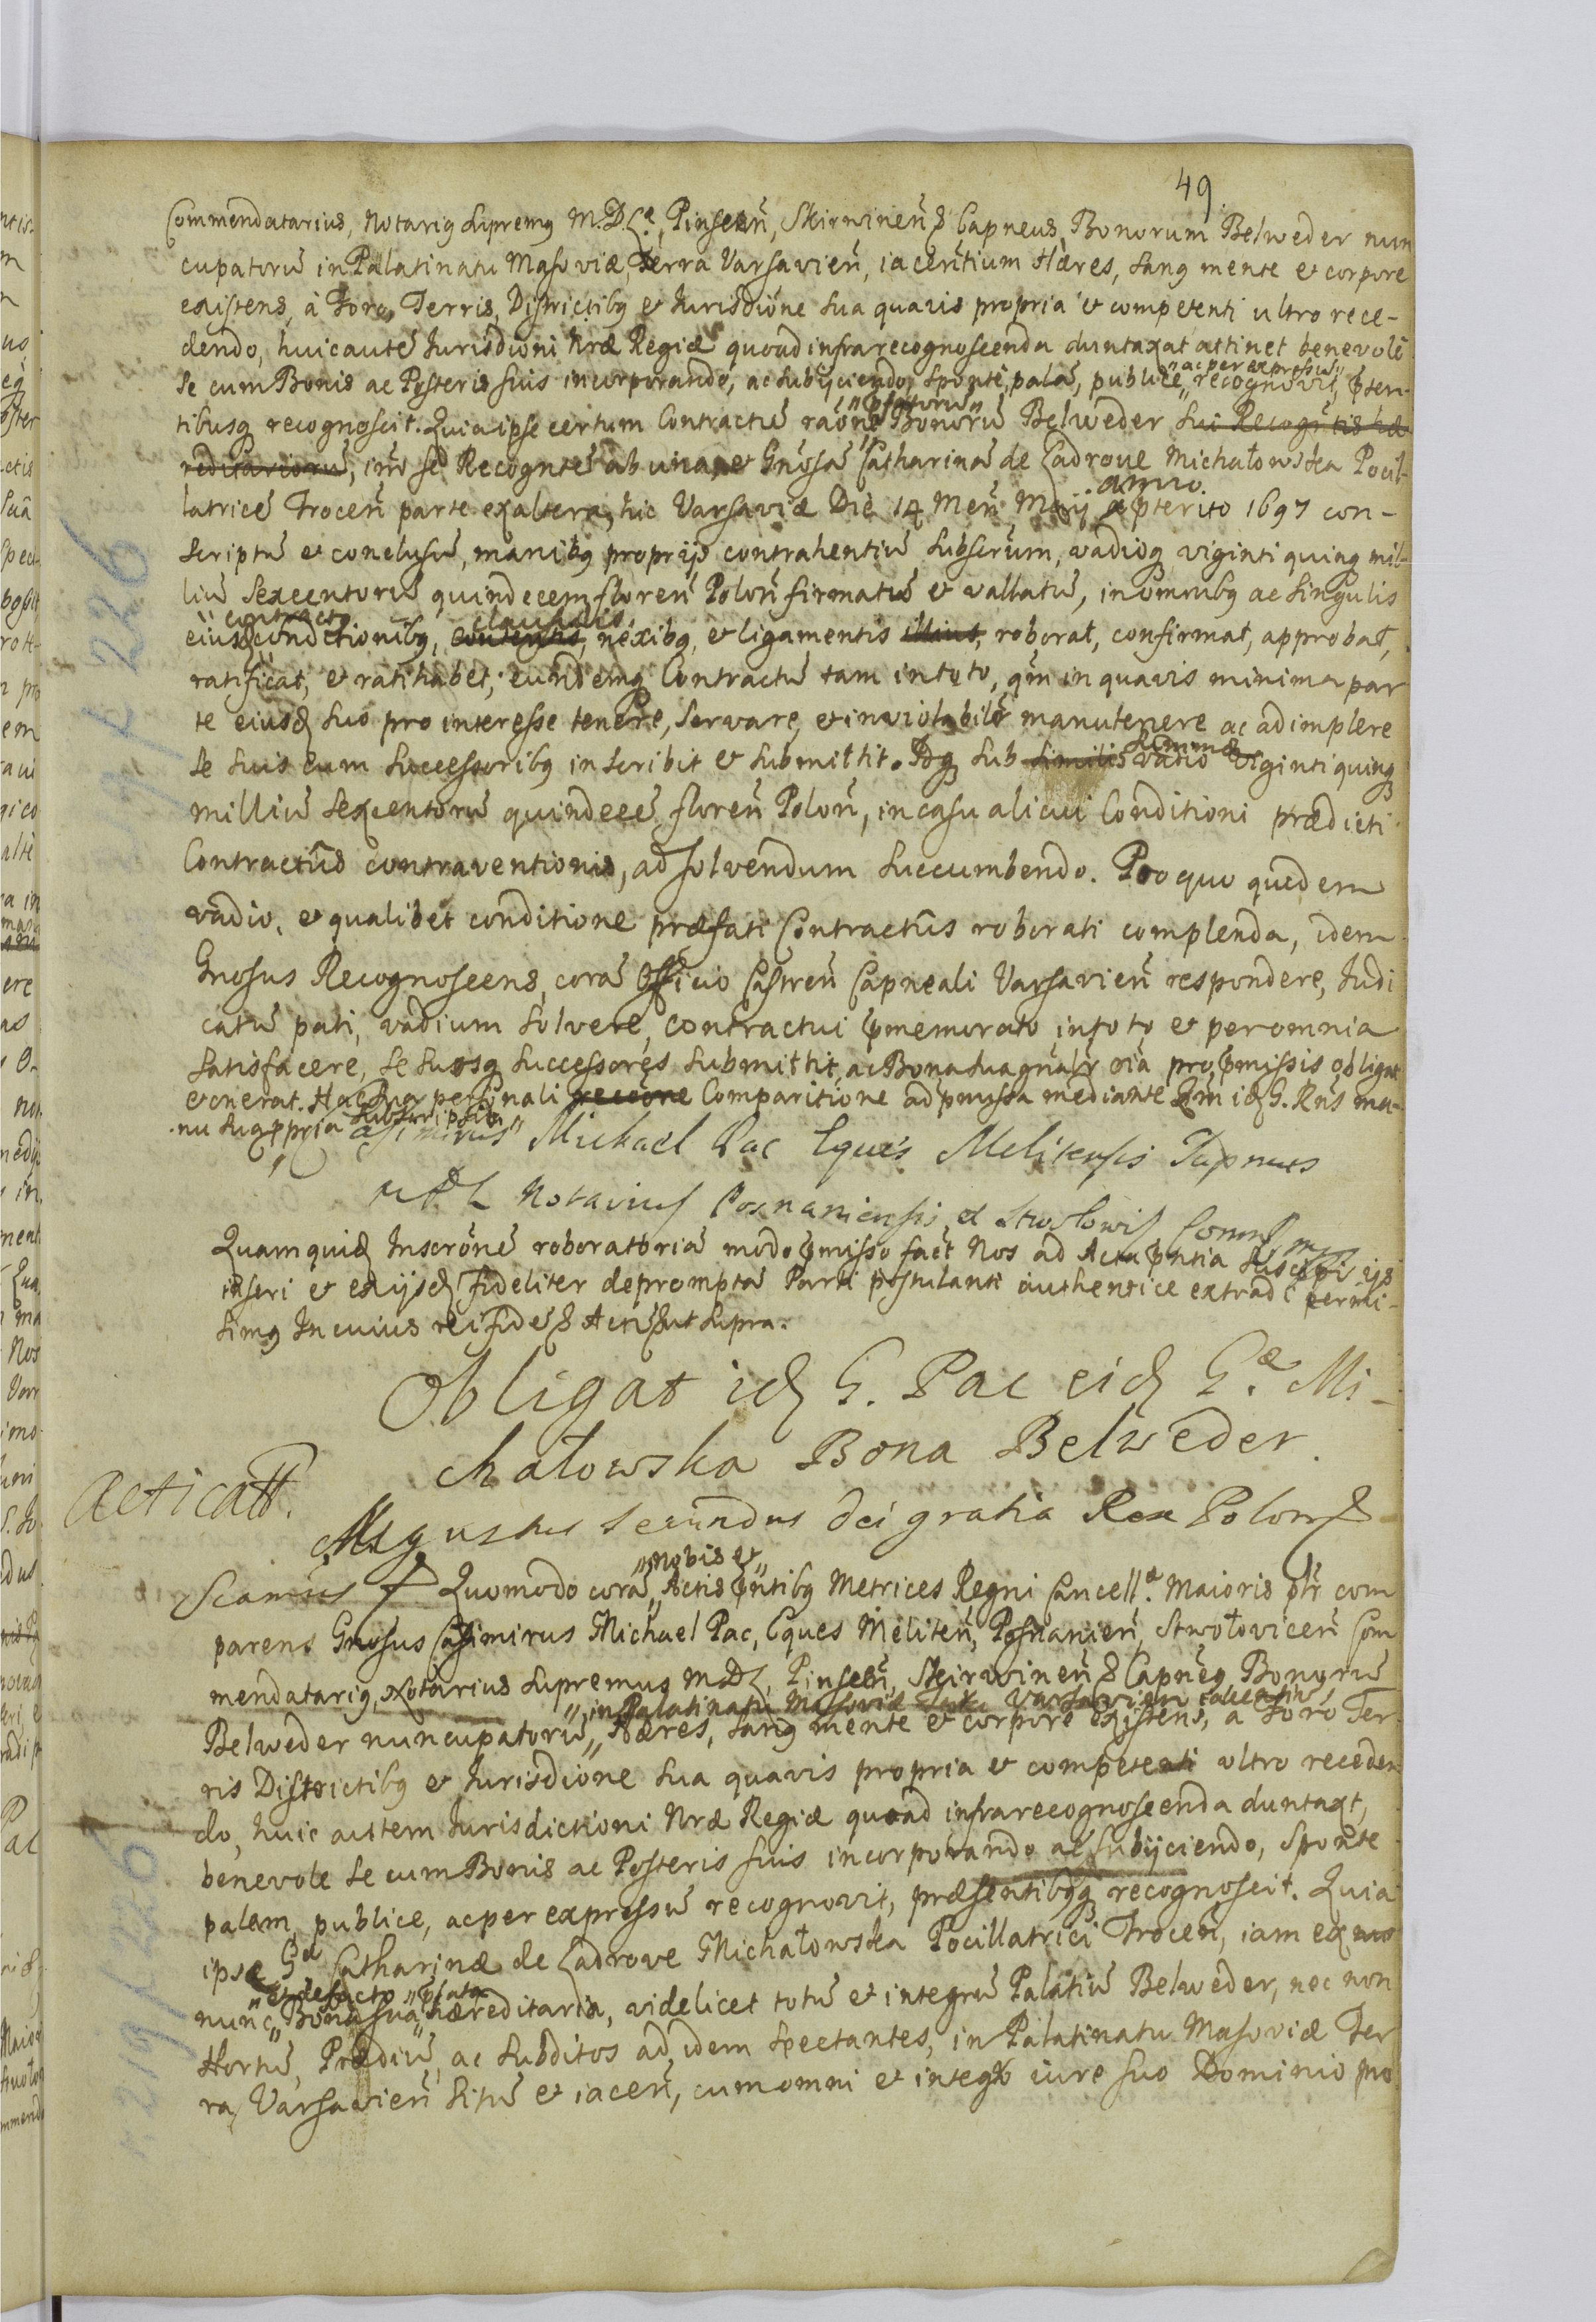 49
Commendatarius, Notariq Supremq M.D.L., Pinsceñ, Skirwineñ & Capneus, Bonorum Belweder nun
cupatorũ in Palatinatu Masoviæ, Terra Varsavieñ, iacentium Hæres, Sanq mente et corpore
existens, à Foro, Terris, Districtibq et Jurisdióne sua quavis propria et competenti ultro rece-
dendo, huic autẽ Jurisdioni Nræ Regiæ quoad infrarecognoscenda duntaxat attinet benevolè
Se cum Bonis ac Posteris suis incorporando, ac subijciendo, Sponte, palã, publice "ac per expressũ" recognovit, pñsen-
tibusq recognoscit. Quia ipse certum Contractũ raõne "pfatorũ" Bonorũ Belweder sui Recogñtis hæ
reditariorũ, inter se Recogntẽ ab una, et Gñosã Catharinã de Ladrove Michałowska Pocil-
latricẽ Troceñ parte ex altera, hic Varsaviæ Die 14 Meñ Maij anno præterito 1697 con-
scriptũ et conclusũ, manibq proprijs contrahentiũ subscrum, vadioq viginti quinq mil-
liũ Sexcentorũ quindecem floreñ Poloñ firmatũ et vallatũ, in omnibq ac singulis
eiusd contractq conditionibq, contentis, clausulis, nexibq, et ligamentis illius, roborat, confirmat, approbat,
ratificat, et ratihabet, eundemq Contractũ tam in toto, qm in quavis minima par
te eiusd suo pro interesse tenere, servare, et inviolabilr manutenere ac adimplere
se suis cum Successoribq inscribit et submittit. Idq sub similis vadio Summæ viginti quinq
milliũ sexcentorũ quindecẽ floreñ Poloñ, in casu alicui Conditioni prædicti
Contractûs contraventionis, ad solvendum succumbendo. Pro quo quidem
vadio, et qualibet conditione præfati Contractûs roborati complenda, idem
Gnosus Recognoscens, corã Officio Castreñ Capneali Varsavieñ respondere, Judi
catũ pati, vadium solvere, contractui pmemorato in toto et per omnia
satisfacere, se suosq successores submittit, ac Bona sua gñalr oia pro pmissis obligat
et onerat. Hac sua personali recõne Comparitione ad pmissa mediante Qm id G. Rñs ma-
nu sua ppria subscripsit.
Casimirus Michael Pac Eques Melitensis Capneus
MDL Notarius Posnaniensis et Stwolowis Comm mpp
Quam quid Inscrõnẽ roboratoriã modo pmisso fact Nos ad Acta pñtia suscipi ijs
inseri et ex ijsd fideliter depromptã Parti postulanti authentice extradi permi-
simq In cuius rei fidẽ & Actũ & ut supra.
Obligat id G. Pac eid G.æ Mi-
chałowska Bona Belweder.
Acticatt.
Augustus Secundus Dei gratia Rex Polon &
Scamus & Quomodo corã "Nobis et" Actis pñtibq Metrices Regni Cancellæ Maioris plr com
parens Gnosus Casimirus Michael Pac, Eques Meliteñ, Posnanieñ, Stwołoviceñ Com
mendatariq, Notarius Supremus MDL, Pinsceñ, Skirwineñ & Capneq Bonorũ
Belweder nuncupatorũ "in Palatinatu Masoviæ Terra Varsavieñ iacentium" Hæres, sanq mente et corpore existens, a Foro Ter
ris Districtibq et Jurisdióne sua quavis propria et competenti ultro receden
do, huic autem Jurisdictioni Nræ Regiæ quoad infrarecognoscenda duntaxt,
benevole se cum Bonis ac Posteris suis incorporando ac subijciendo, sponte
palam, publice, ac per expressũ recognovit, præsentibqq recognoscit. Quia
ipse Gæ Catharinæ de Ladrove Michałowska Pocillatrici Troceñ, iam ex nũo
nunc "et de facto" Bona sua "pfata" hæreditaria, videlicet totũ et integrũ Palatiũ Belweder, nec non
Hortũ, Prædiũ, ac Subditos ad idem spectantes, in Palatinatu Masoviæ Ter
ra Varsavieñ Sitũ et iaceñ, cum omni et integro iure suo Dominio pro